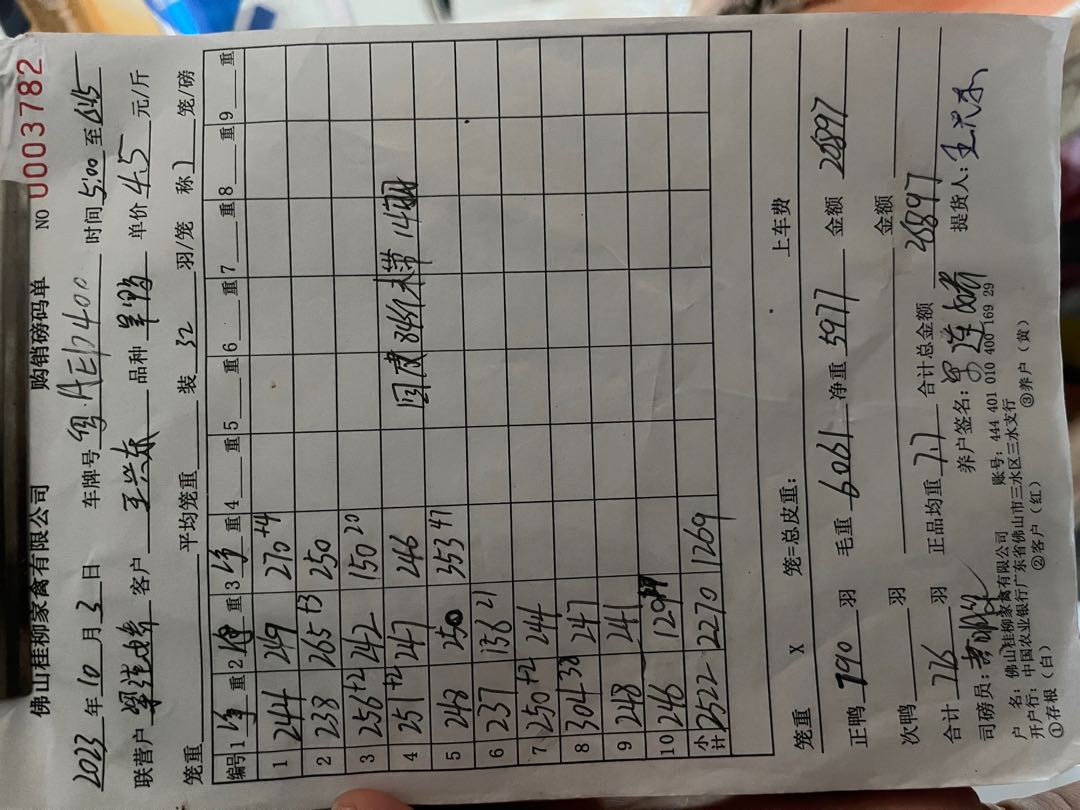 佛山桂柳家禽有限公司 购销磅码单 NO 0003782
2023年10月3日 车牌号粤AEP400 时间5:00至
联营户 客户王兴东 品种 单价4.5元/斤
笼重 平均笼重 装32羽/笼 称1笼/磅
编号 1 重 2 重 3 重 4 重 5 重 6 重 7 重 8 重 9 重
1 244 249 270+4
2 238 265+3 250
3 256+2 242 150 20
4 251+2 247 246
5 248 250 353 47
6 237 136 21
7 250+2 244
8 304 38 247
9 248 241
10 246 129
小计 2522 2270 1269
笼重 X 笼=总皮重: 上车费
正鸭790羽 毛重6061 净重5977 金额26897
次鸭 羽 金额
合计776羽 正品均重7.7 合计总金额26897
司磅员: 养户签名: 提货人:王兴东
户 名:佛山桂柳家禽有限公司 账号:444 401 010 400 169 29
开户行:中国农业银行广东省佛山市三水区三水支行
①存根(白) ②客户(红) ③养户(黄)